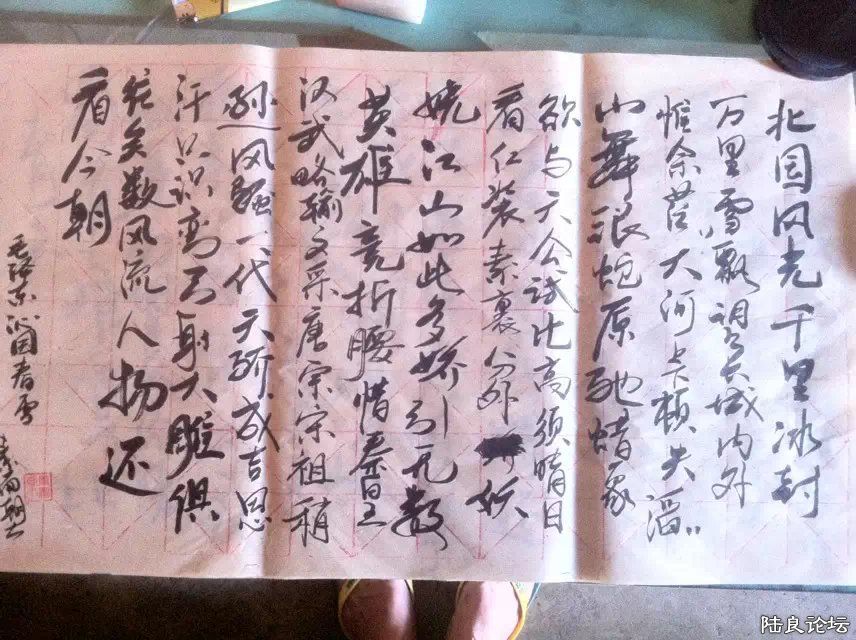 北国风光千里冰封
万里雪飘望长城内外
惟余莽大河上顿失滔
山舞银蛇原驰蜡象
欲与天公试比高须晴日
看红装素裹分外妖
娆江山如此多娇引无数
英雄竞折腰惜秦皇
汉武略输文采唐宗宋祖稍
逊风骚一代天骄成吉思
汗只识弯弓射大雕俱
往矣数风流人物还
看今朝
毛泽东沁园春雪
陆良论坛